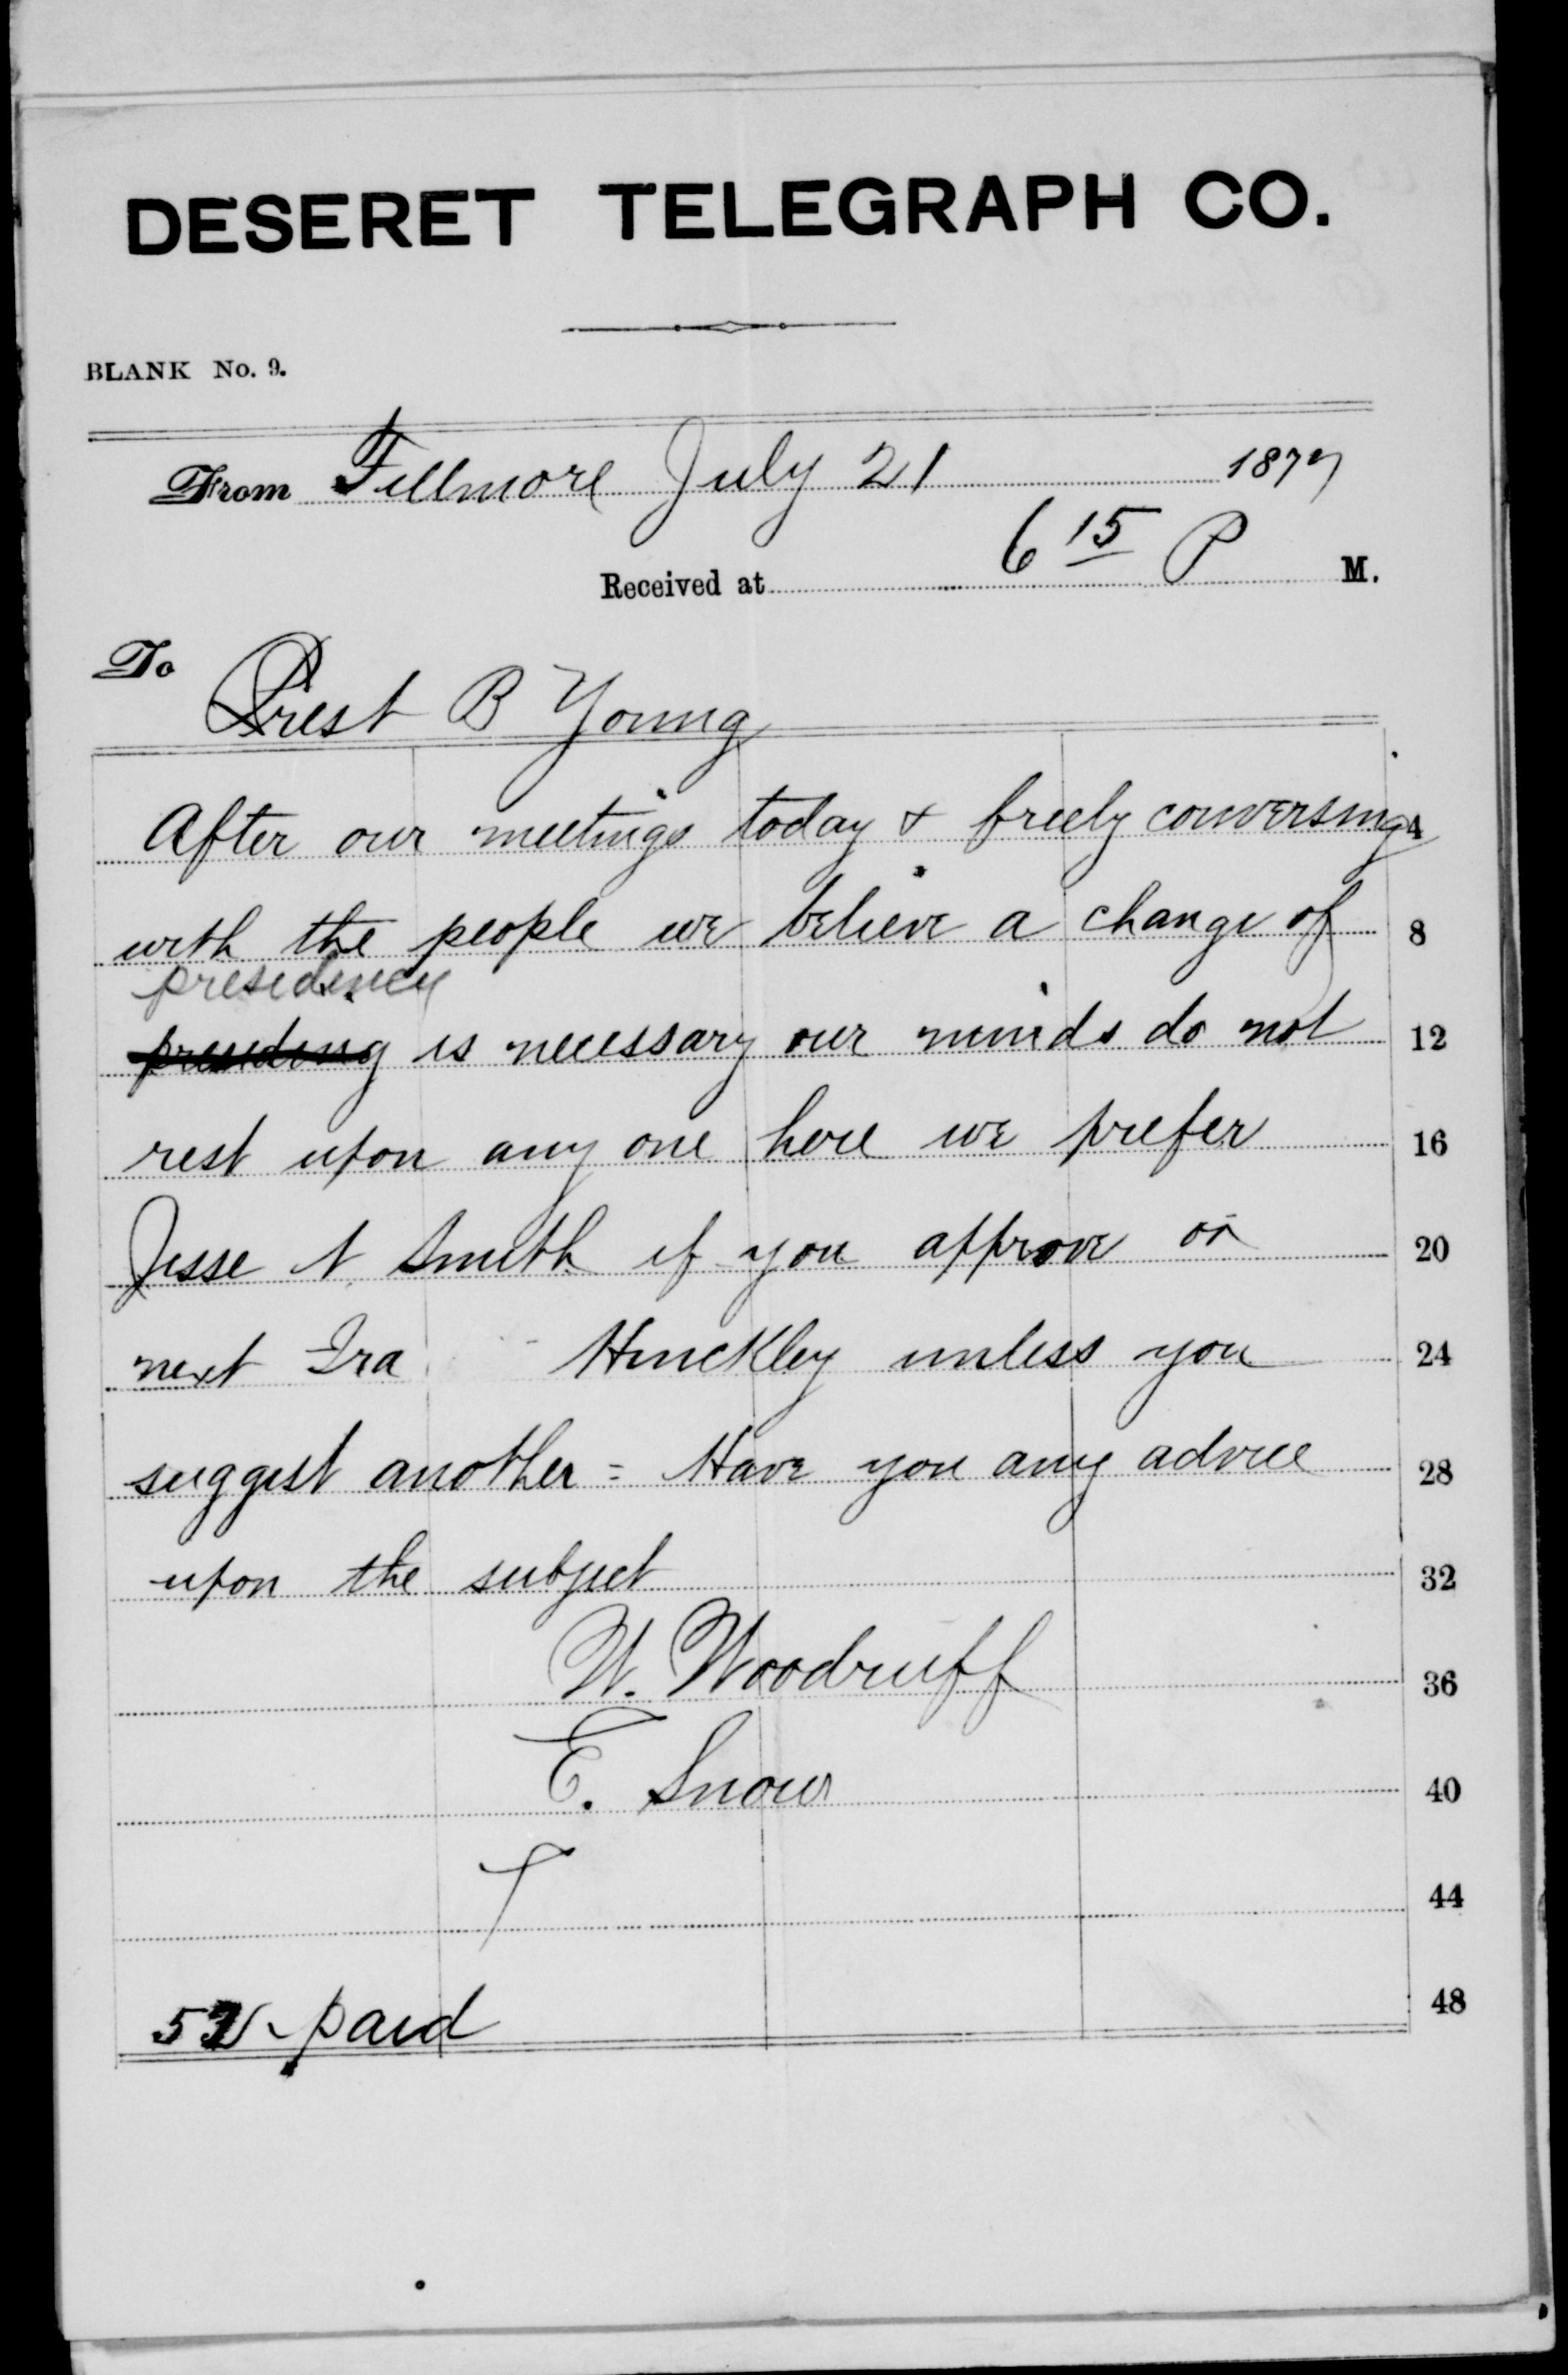 DESERET TELEGRAPH CO.
BLANK No. 9.
From Fillmore July 21 1877
Received at 6 15 P M.
To
Prest B Young
After our meetings today & freely conversing 4
with the people we believe a change of 8
presidency
presiding is necessary our minds do not 12
rest upon any one here we prefer 16
Jesse N Smith if you approve or 20
next Ira Hinckley unless you 24
suggest another = Have you any advice 28
upon the subject 32
W. Woodruff 36
E. Snow 40
44
48
paid